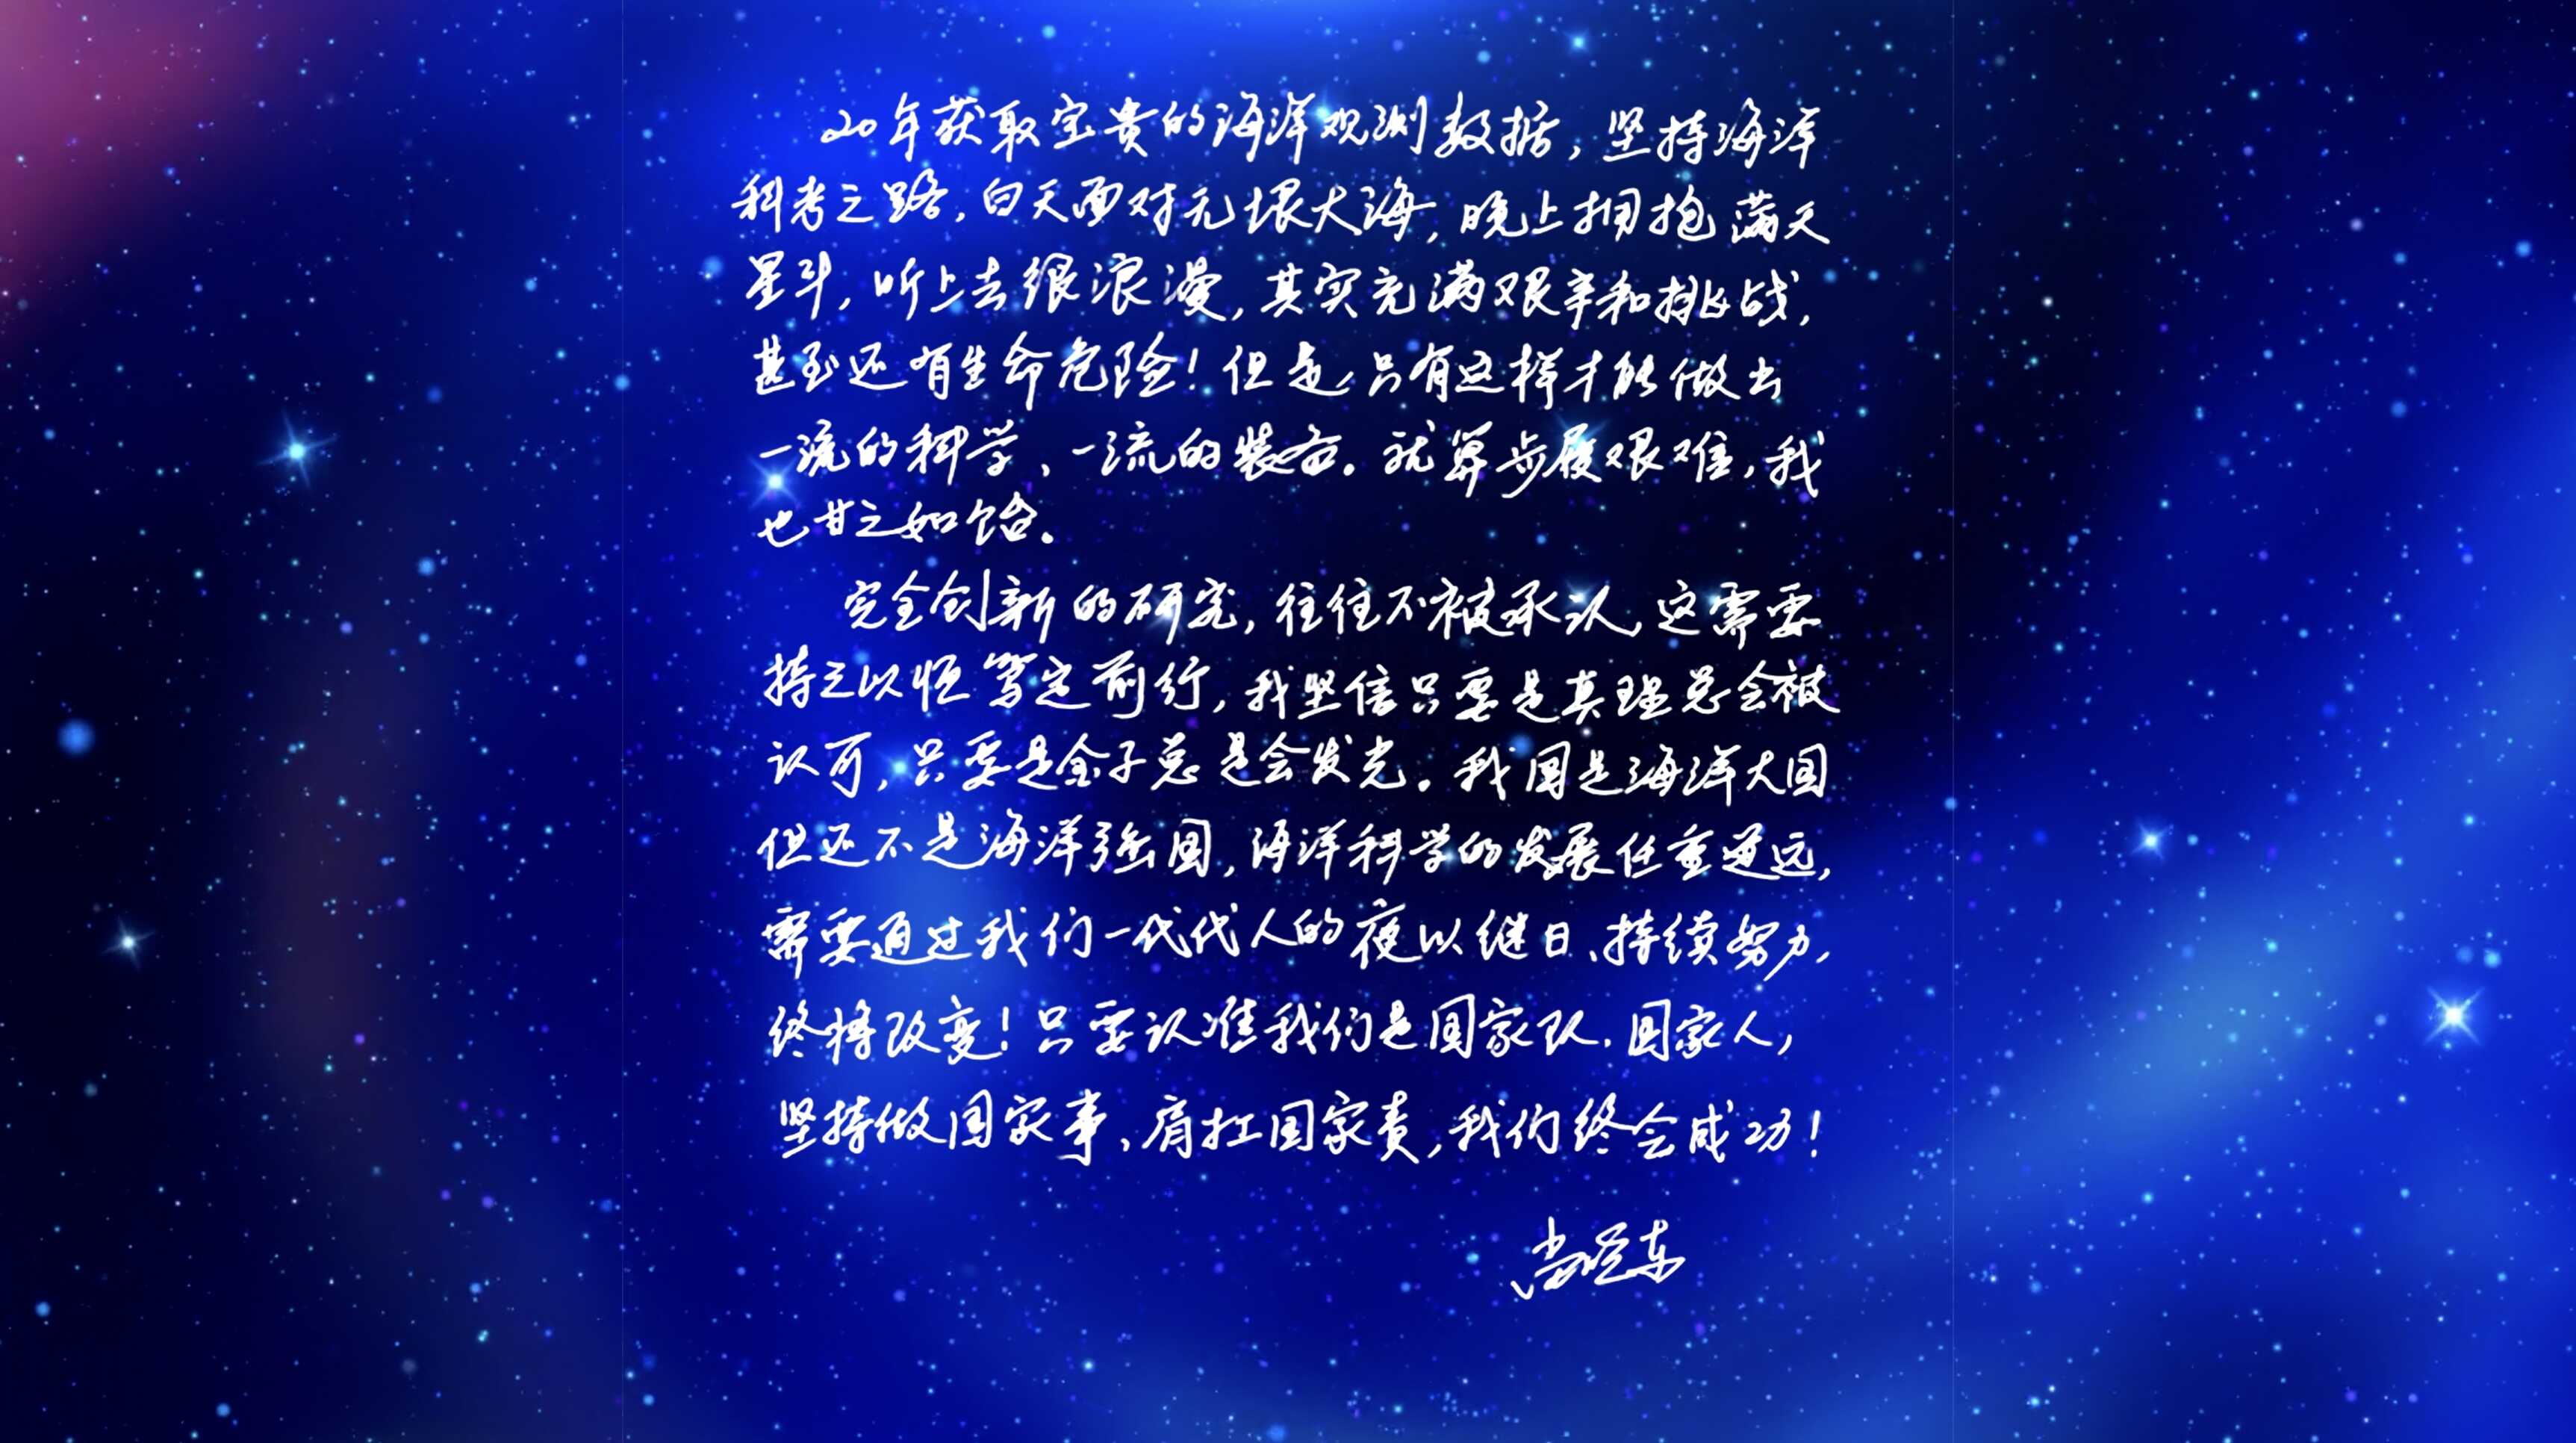 20年获取宝贵的海洋观测数据，坚持海洋
科考之路，白天面对无垠大海，晚上拥抱满天
星斗，听上去很浪漫，其实充满艰辛和挑战，
甚至还有生命危险！但是，只有这样才能做出
一流的科学、一流的装备。就算步履艰难，我
也甘之如饴。
完全创新的研究，往往不被承认，这需要
持之以恒笃定前行，我坚信只要是真理总会被
认可，只要是金子总是会发光。我国是海洋大国
但还不是海洋强国，海洋科学的发展任重道远，
需要通过我们一代代人的夜以继日、持续努力，
终将改变！只要认准我们是国家队、国家人，
坚持做国家事、肩扛国家责，我们终会成功！
尚晓东